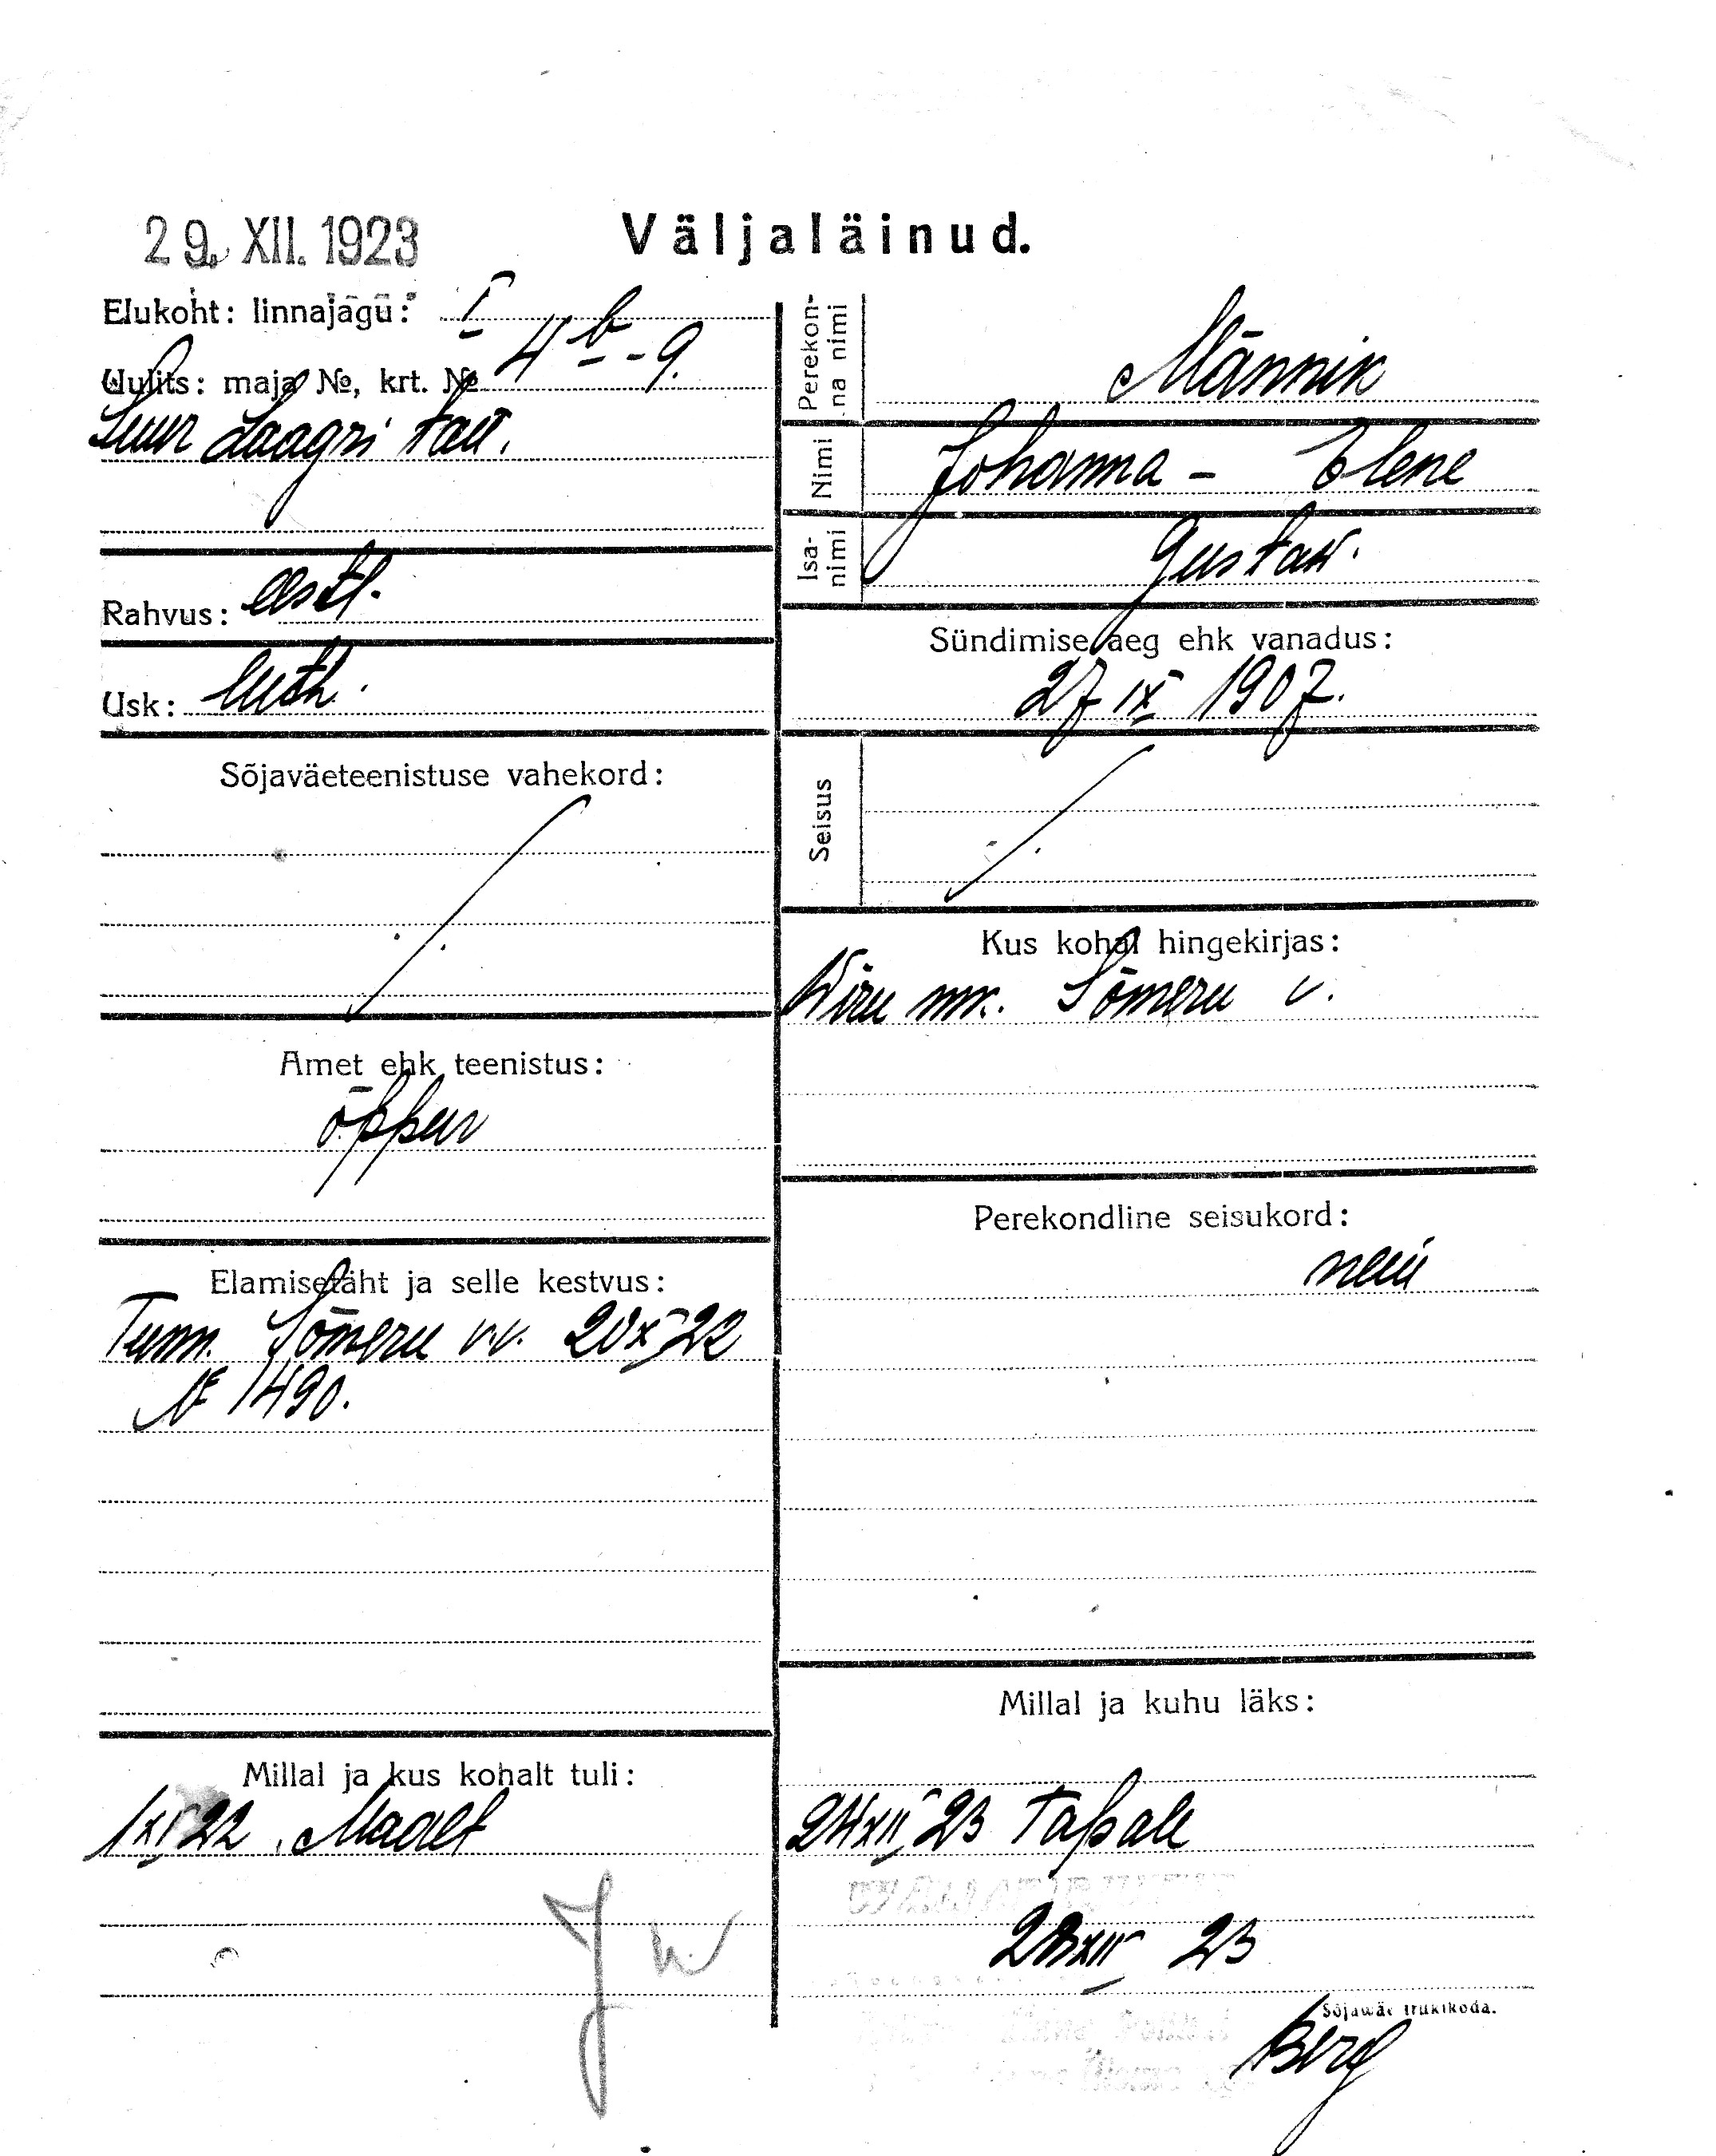 29. XII. 1923
Väljaläinud.
Elukoht: linnajagu: I
Uulits: maja №, krt. № 4 b - 9.
Suur Laagri tän.
Rahvus: eestl.
Usk: luth.
Sõjaväeteenistuse vahekord:
Amet ehk teenistus:
õppur
Elamisetäht ja selle kestvus:
Tunn. Sõmeru v.v. 20 X 22
№ 1490.
Millal ja kus kohalt tuli:
1 XI 22. Maalt
Perekonna nimi
Männik
Nimi
Johanna - Elene
Isanimi
Gustav.
Sündimise aeg ehk vanadus:
27 IX 1907.
Seisus
Kus kohal hingekirjas:
Wiru mk. Sõmeru v.
Perekondline seisukord:
neiu
Millal ja kuhu läks:
24 XII 23 Tapale
28 XII 23
Sõjawäe trükikoda.
Berg